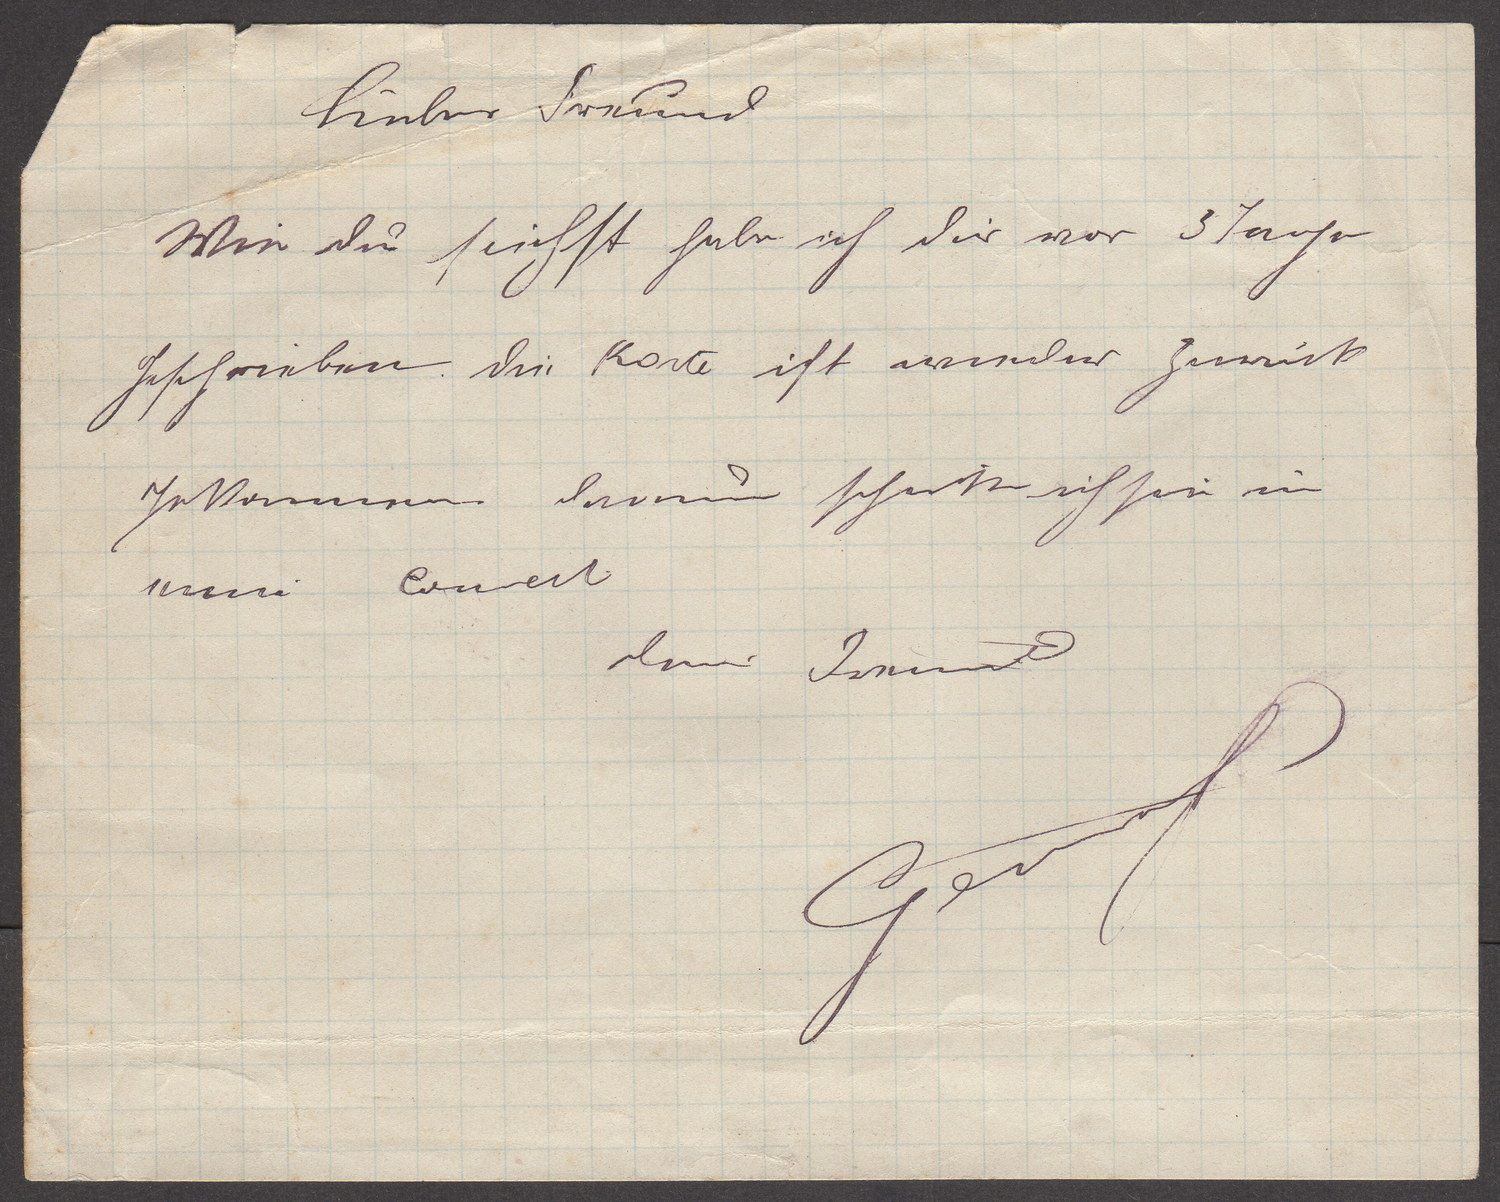 Lieber Freund
Wie du siehst habe ich dir vor 3 Tage
geschrieben die Karte ist wieder zurück
gekommen darum schicke ich sie in
Couvert
dein Freund